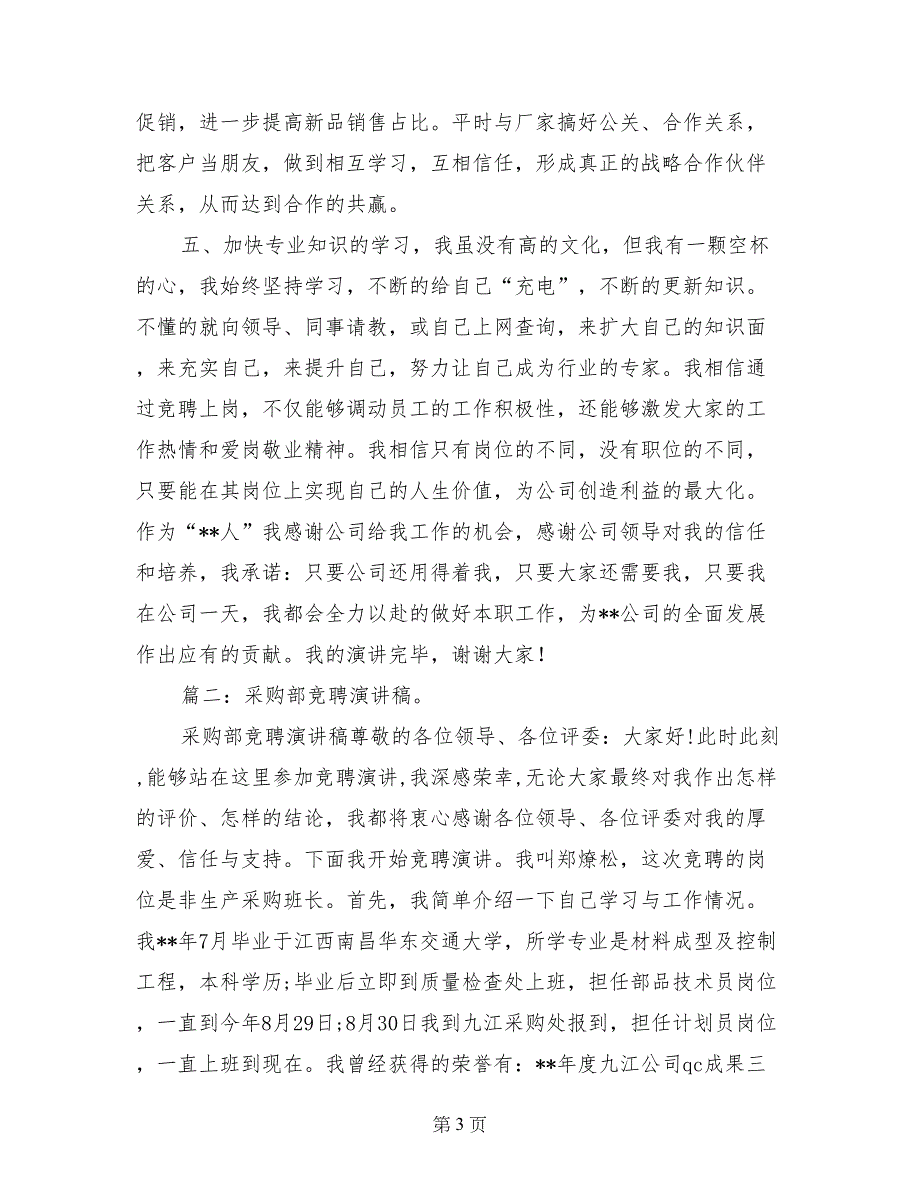 促销，进一步提高新品销售占比。平时与厂家搞好公关、合作关系，
把客户当朋友，做到相互学习，互相信任，形成真正的战略合作伙伴
关系，从而达到合作的共赢。
五、加快专业知识的学习，我虽没有高的文化，但我有一颗空杯
的心，我始终坚持学习，不断的给自己“充电”，不断的更新知识。
不懂的就向领导、同事请教，或自己上网查询，来扩大自己的知识面
，来充实自己，来提升自己，努力让自己成为行业的专家。我相信通
过竞聘上岗，不仅能够调动员工的工作积极性，还能够激发大家的工
作热情和爱岗敬业精神。我相信只有岗位的不同，没有职位的不同，
只要能在其岗位上实现自己的人生价值，为公司创造利益的最大化。
作为“**人”我感谢公司给我工作的机会，感谢公司领导对我的信任
和培养，我承诺：只要公司还用得着我，只要大家还需要我，只要我
在公司一天，我都会全力以赴的做好本职工作，为**公司的全面发展
作出应有的贡献。我的演讲完毕，谢谢大家！
篇二：采购部竞聘演讲稿。
采购部竞聘演讲稿尊敬的各位领导、各位评委：大家好!此时此刻
,能够站在这里参加竞聘演讲,我深感荣幸,无论大家最终对我作出怎样
的评价、怎样的结论，我都将衷心感谢各位领导、各位评委对我的厚
爱、信任与支持。下面我开始竞聘演讲。我叫郑燎松，这次竞聘的岗
位是非生产采购班长。首先，我简单介绍一下自己学习与工作情况。
我**年7月毕业于江西南昌华东交通大学，所学专业是材料成型及控制
工程，本科学历;毕业后立即到质量检查处上班，担任部品技术员岗位
，一直到今年8月29日;8月30日我到九江采购处报到，担任计划员岗位
，一直上班到现在。我曾经获得的荣誉有：**年度九江公司qc成果三
第 3 页